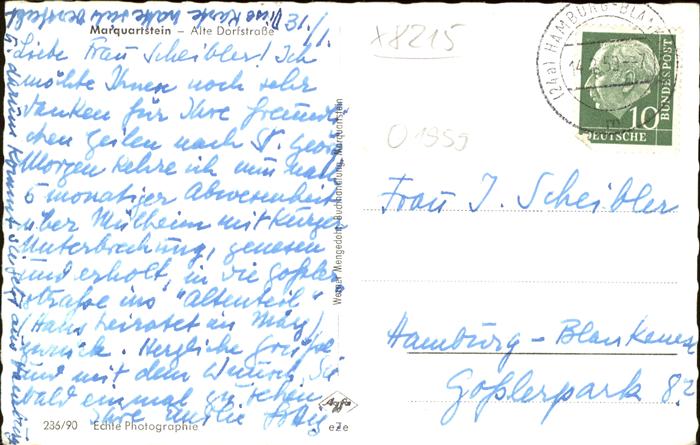 Diese Karte hatte ich
13./1.
Marquartstein – Alte Dorfstraße
Liebe Frau Scheibler! Ich
möchte Ihnen noch sehr
danken für Ihre freundli-
chen Zeilen nach St.
Morgen kehre ich nun nach
5 monatiger Abwesenheit
über Mülheim mit kurzer
Unterbrechung, genesen
und erholt, in die Goßler
straße ins "Altenteil"
(Hans heiratet im März)
zurück. Herzliche Grüße
und mit dem Wunsch, Sie
bald einmal zu sehen
Ihre
236/90 Echte Photographie
Agfa
eze
Werner Mengedoht, Buchhandlung, Marquartstein
x8215
O 1959
(24a) HAMBURG-BLANKENESE
14. 59
m
10
DEUTSCHE
BUNDESPOST
Frau J. Scheibler
Hamburg – Blankenese
Goßlerpark 8?